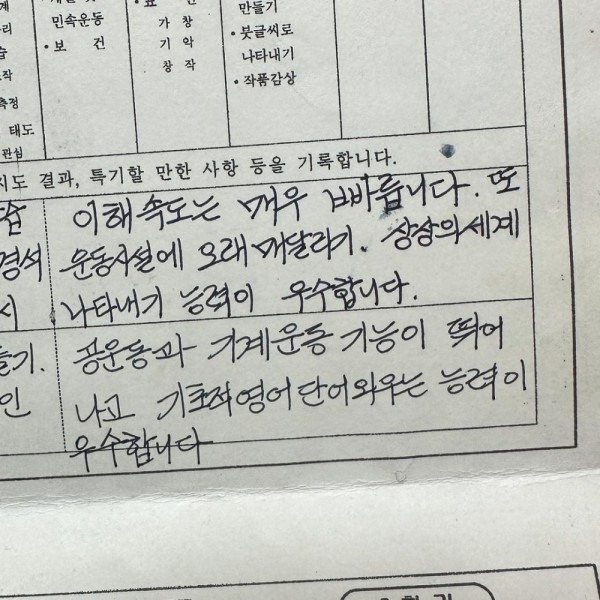 계
민속운동
만들기
• 보 건
가 창
• 붓글씨로
기 악
나타내기
창 작
• 작품감상
측정
태도
관심
지도 결과, 특기할 만한 사항 등을 기록합니다.
이해속도는 매우 빠릅니다. 또
경석 운동시설에 오래 매달리기. 상상의 세계
시 나타내기 능력이 우수합니다.
들기. 공운동과 기계운동 기능이 뛰어
인 나고 기초적영어단어외우는 능력이
우수합니다